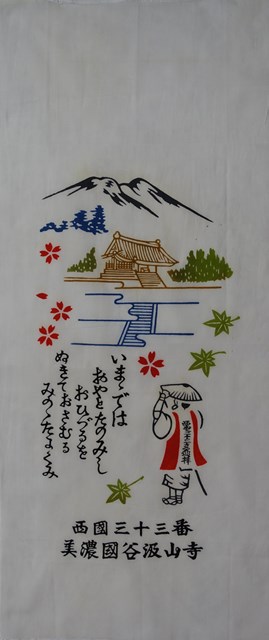 いまゝでは
おやとたのみし
おひづるを
ぬきておさむる
みのゝたにくみ
西國三十三番
美濃國谷汲山寺